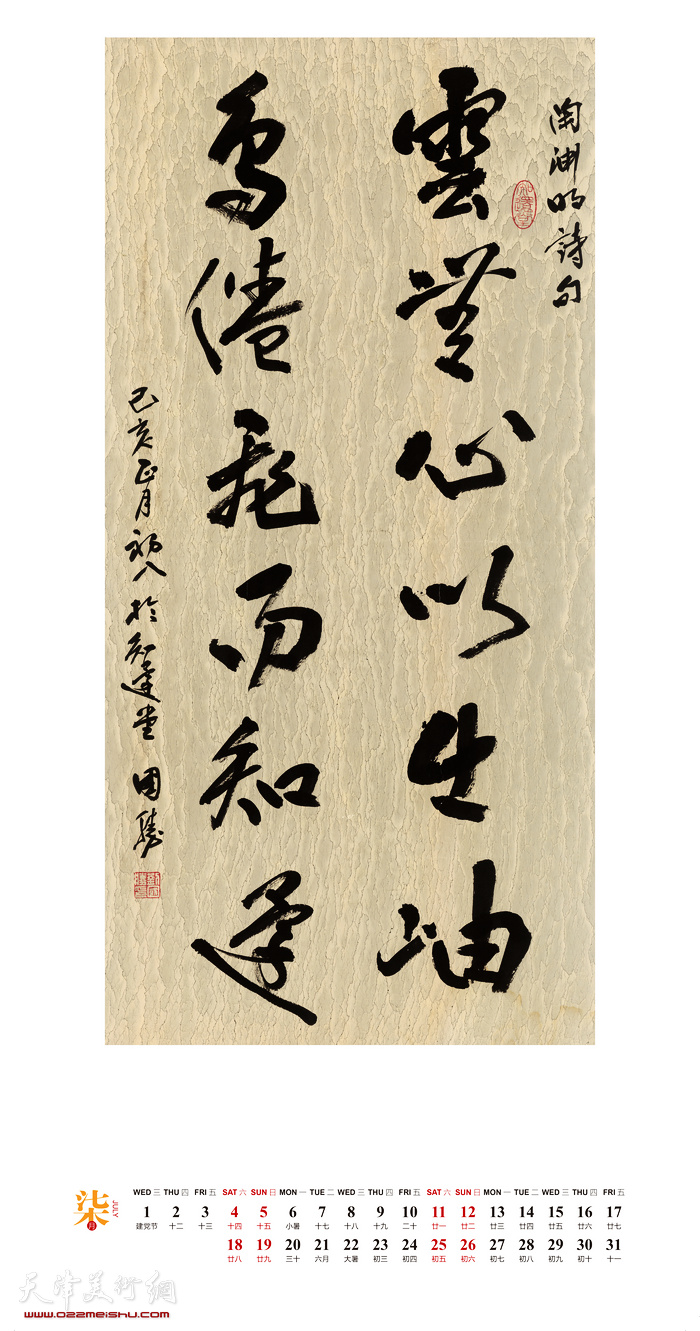 陶渊明詩句
雲無心以出岫
鳥倦飛而知還
己亥正月初八於知還堂 国勝
柒
月
JULY
WED 三 THU 四 FRI 五 SAT 六 SUN 日 MON 一 TUE 二 WED 三 THU 四 FRI 五 SAT 六 SUN 日 MON 一 TUE 二 WED 三 THU 四 FRI 五
1 2 3 4 5 6 7 8 9 10 11 12 13 14 15 16 17
建党节 十二 十三 十四 十五 小暑 十七 十八 十九 二十 廿一 廿二 廿三 廿四 廿五 廿六 廿七
18 19 20 21 22 23 24 25 26 27 28 29 30 31
廿八 廿九 三十 六月 大暑 初三 初四 初五 初六 初七 初八 初九 初十 十一
天津美術網
www.022meishu.com